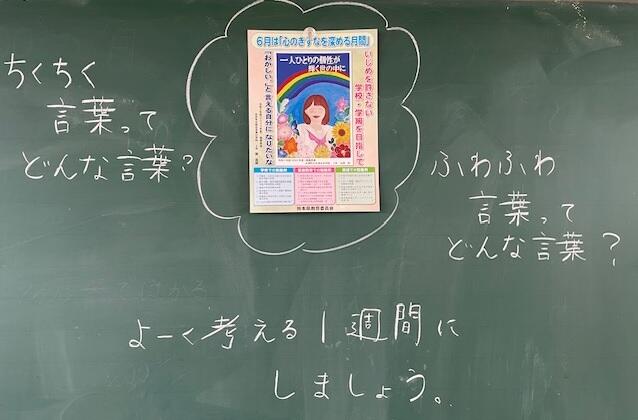 ちくちく
言葉って
どんな言葉?
6月は「心のきずなを深める月間」
いじめを許さない
学校・学級を目指して
一人ひとりの個性が
輝く世の中に
「おかしい。」と言える自分になりたいな
熊本県教育委員会
ふわふわ
言葉って
どんな言葉?
よーく考える1週間に
しましょう。